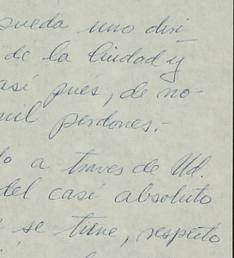 pueda uno divi
de la Ciudad y
así pues, de no-
mil perdones.-
a traves de Ud.
del casi absoluto
se tiene, respecto